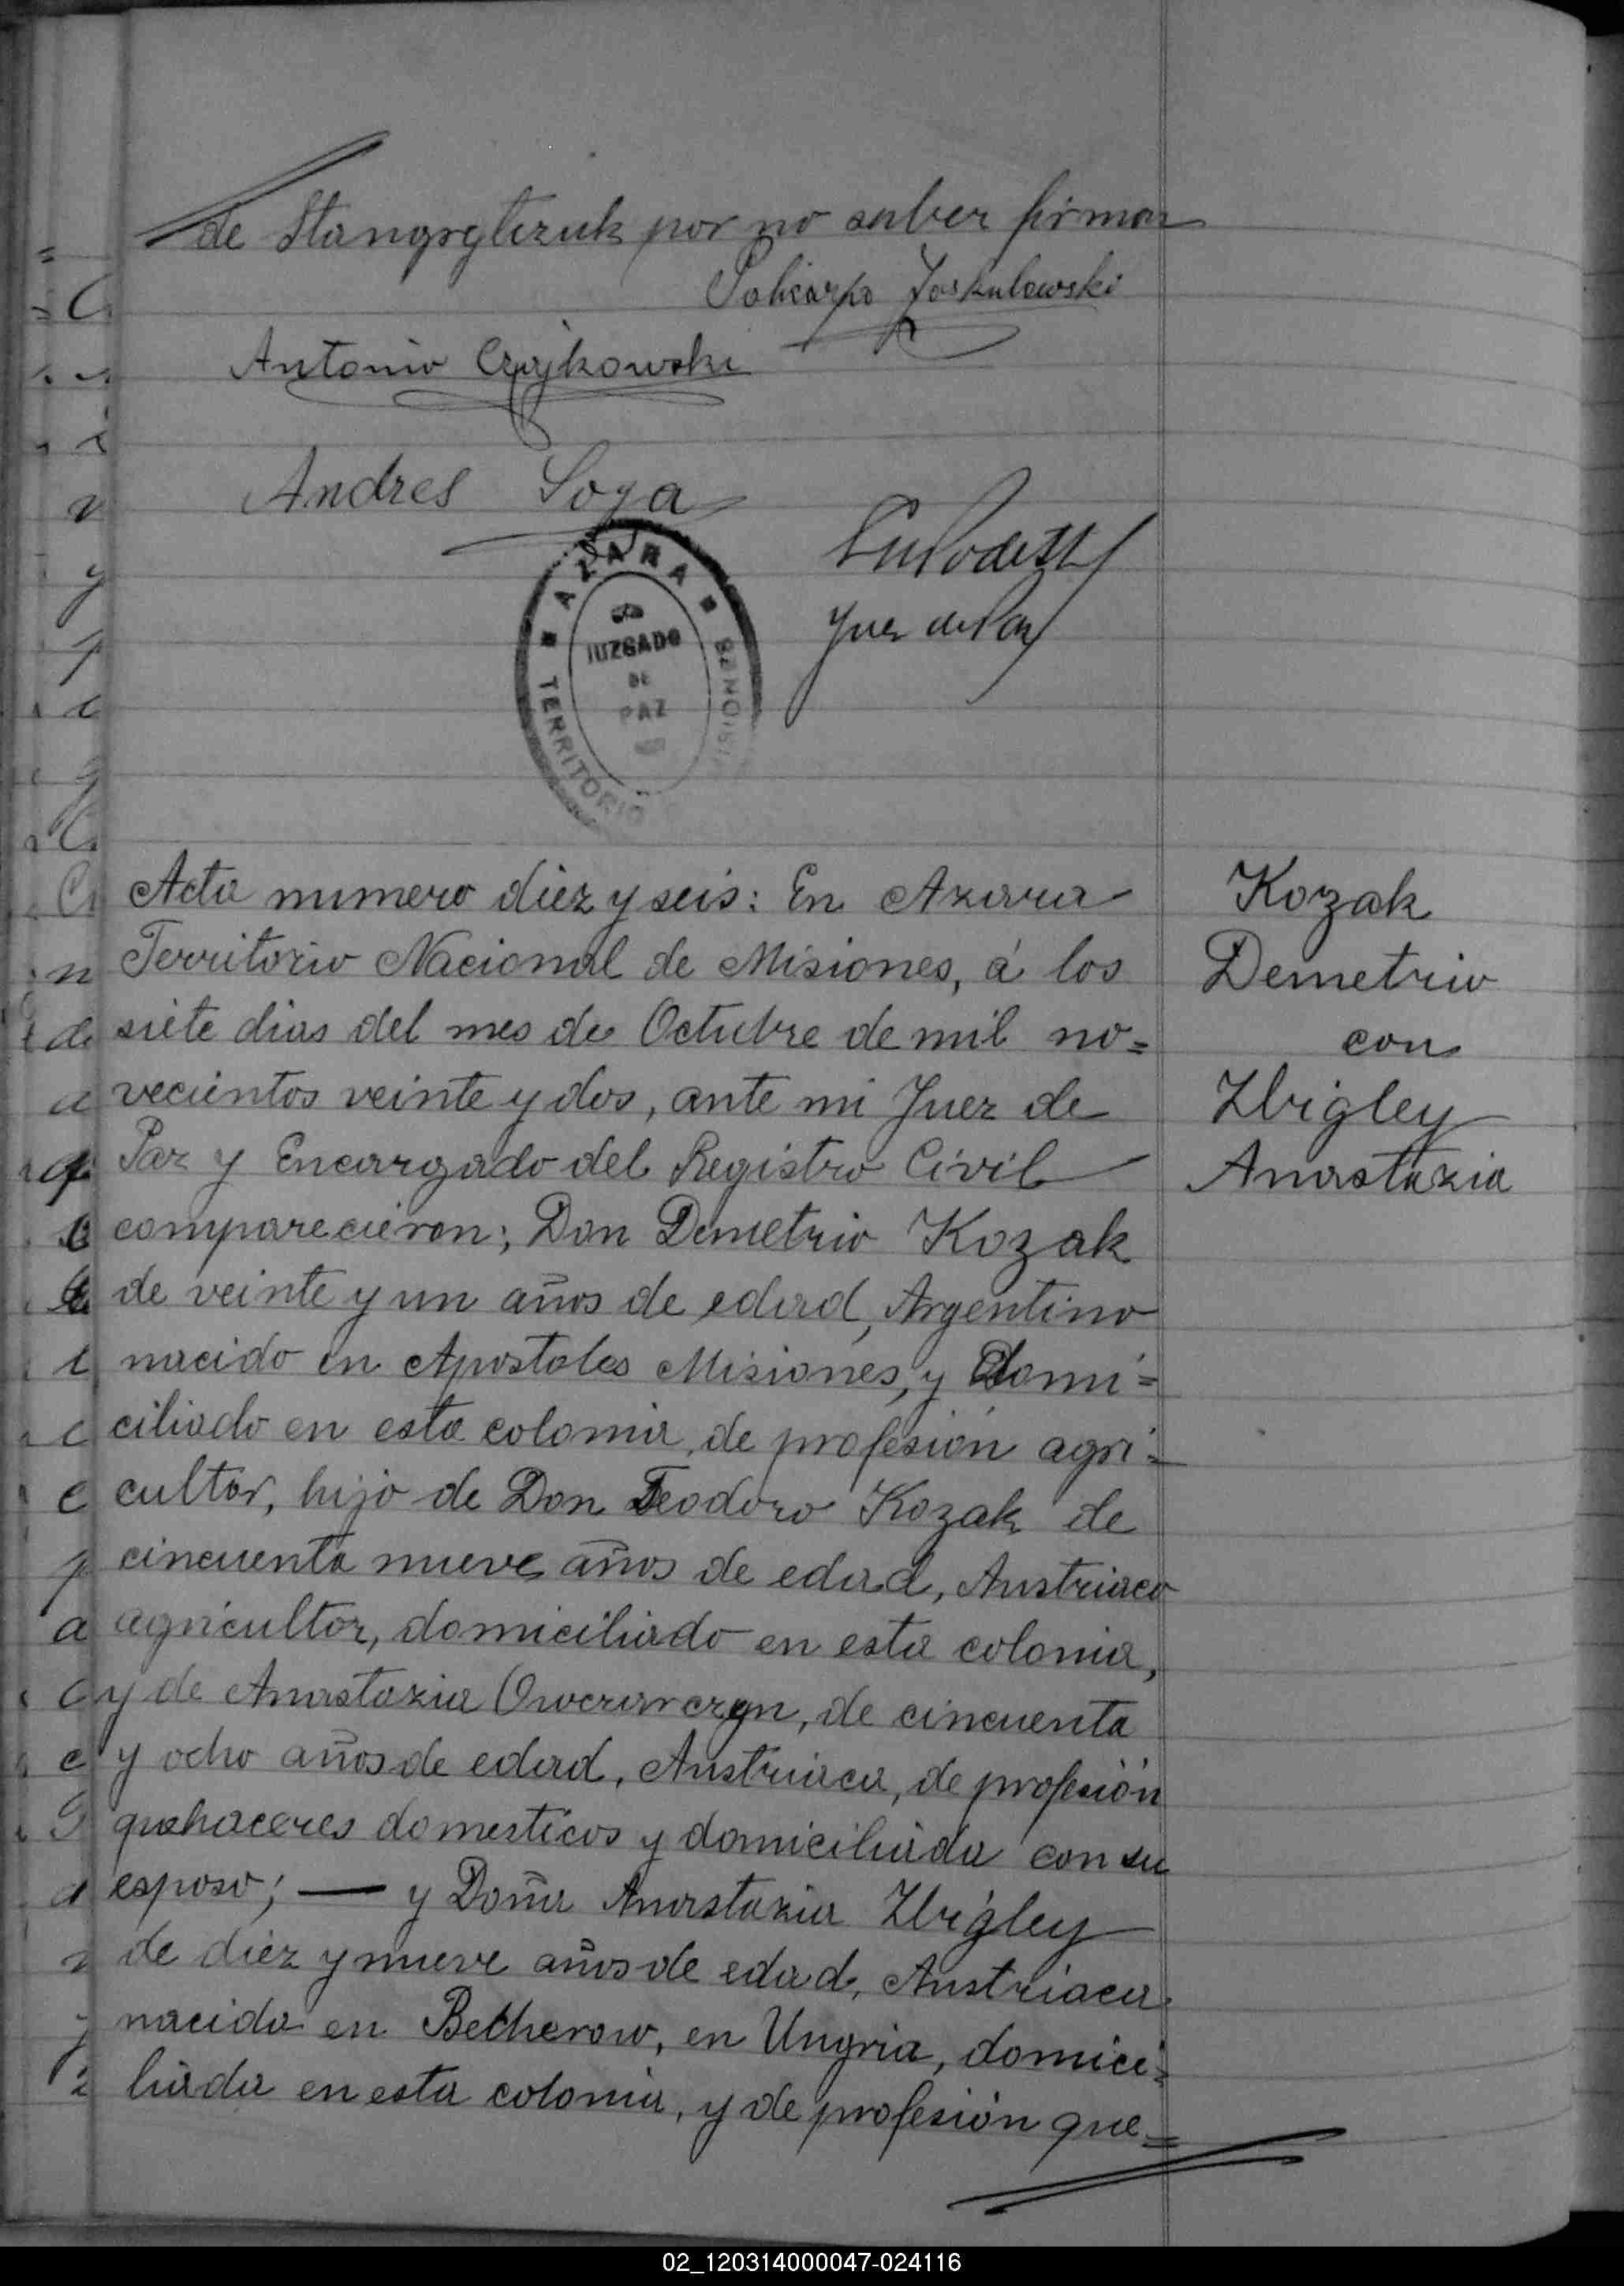 de Stangrytczuk por no saber firmar
Policarpo Jaskulowski
Antonio Czajkowski
Andres Soya
Juez de Paz
AZARA
TERRITORIO
MISIONES
JUZGADO
DE
PAZ
Acta numero diez y seis: En Azara
Territorio Nacional de Misiones, á los
siete dias del mes de Octubre de mil no=
vecientos veinte y dos, ante mi Juez de
Paz y Encargado del Registro Civil
comparecieron; Don Demetrio Kozak
de veinte y un años de edad, Argentino
nacido en Apostoles Misiones, y domi=
ciliado en esta colonia, de profesión agri=
cultor, hijo de Don Teodoro Kozak de
cincuenta nueve años de edad, Austriaco
agricultor, domiciliado en esta colonia,
y de Anastazia de cincuenta
y ocho años de edad, Austriaca, de profesión
quehaceres domesticos y domiciliada con su
esposo; — y Doña Anastazia Zbigley
de diez y nueve años de edad, Austriaca
nacida en Becherow, en Ungria, domici=
liada en esta colonia, y de profesión que=
Kozak
Demetrio
con
Zbigley
Anastazia
02_120314000047-024116